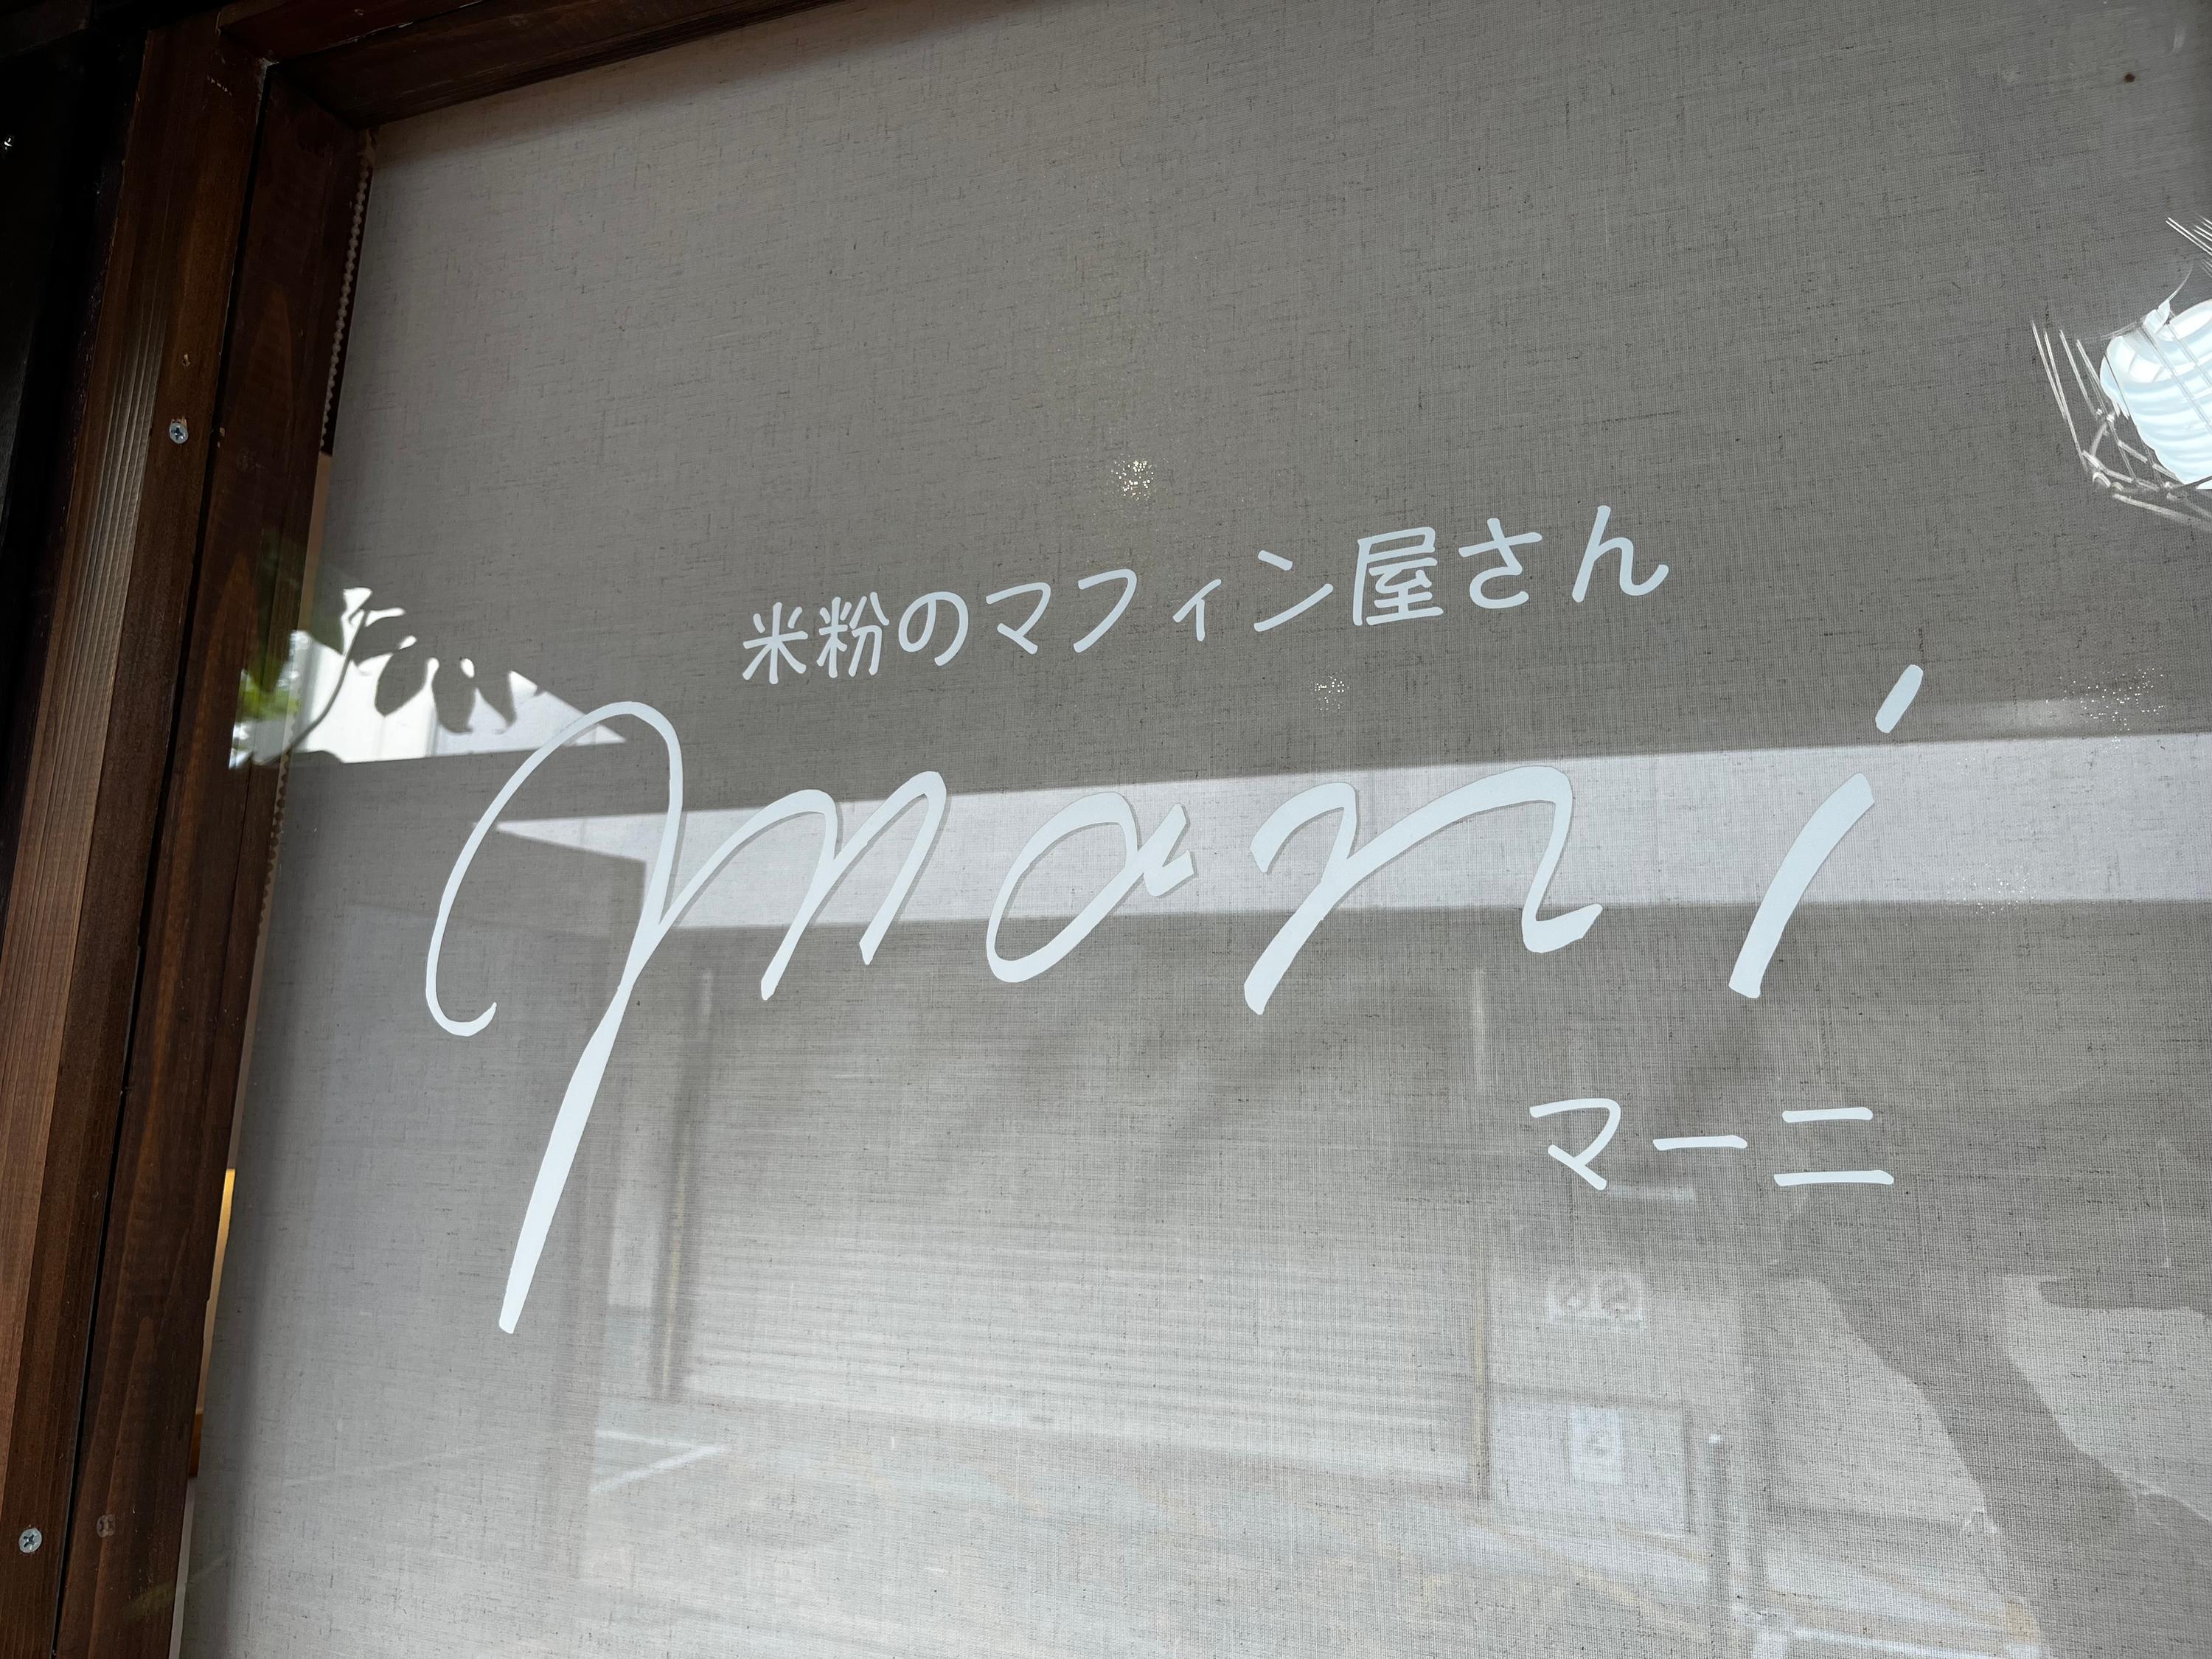 米粉のマフィン屋さん
mani
マーニ